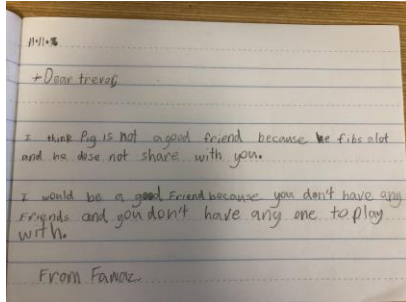 11•11•16
+Dear trevor,
I think Pig is not a good friend because he fibs alot
and he dose not share with you.
I would be a good Friend because you don't have any
Friends and you don't have any one to play
with.
From Fawaz